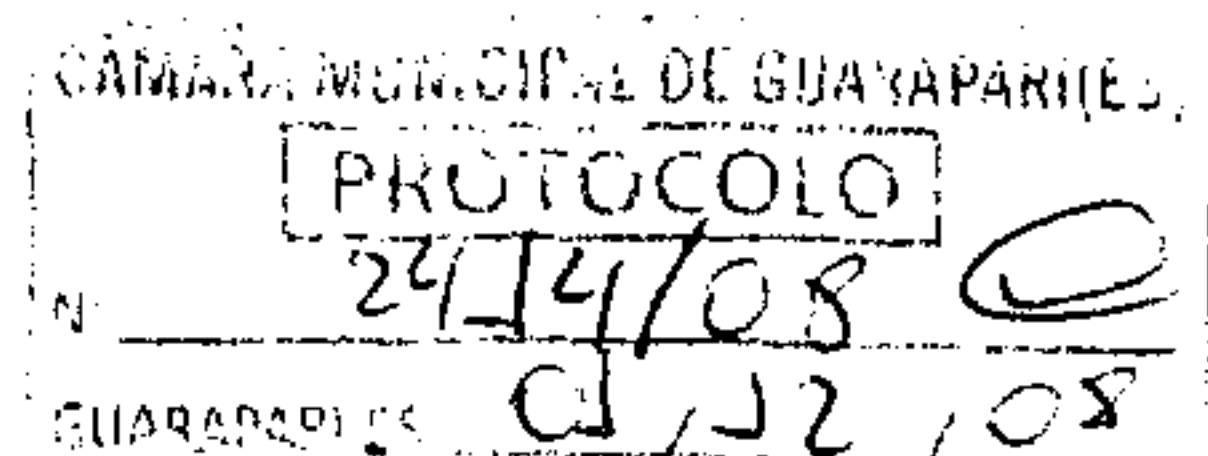 CÂMARA MUNICIPAL DE GUARAPARI (ES)
PROTOCOLO
Nº 2414/08
GUARAPARI, ES 01, 12, 08